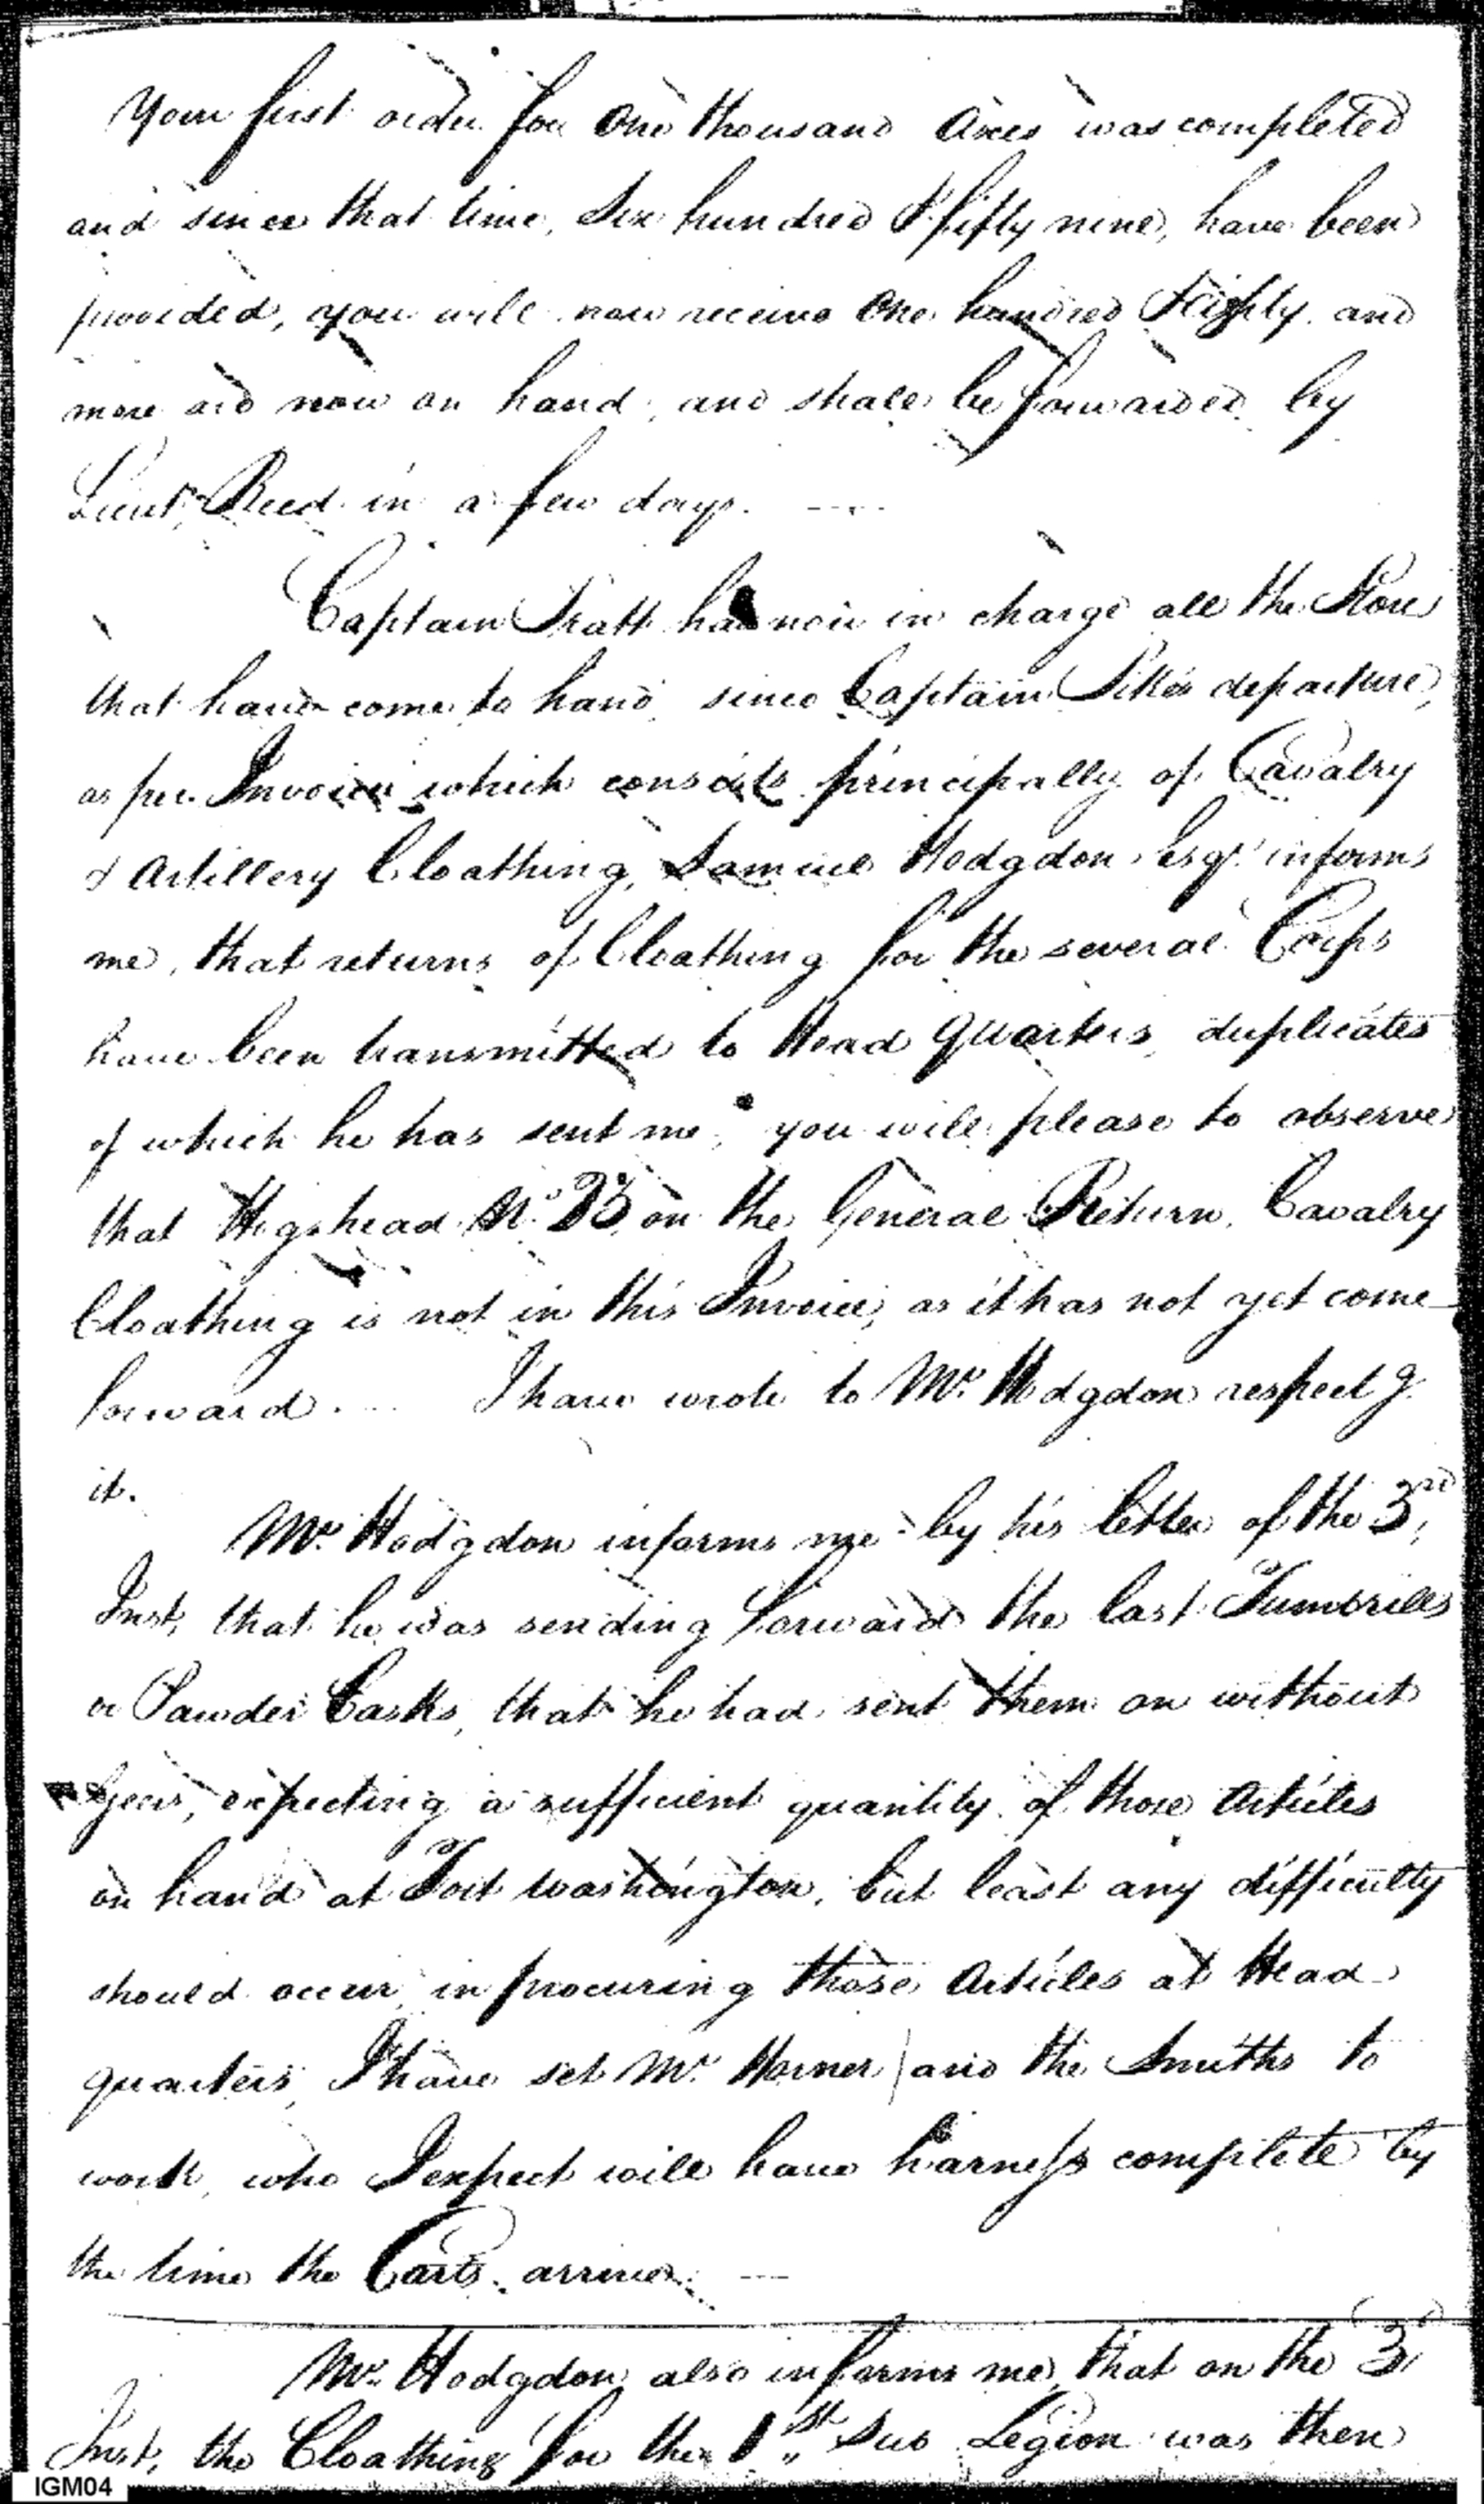 Your first order for One thousand Axes was completed
and since that time, Six hundred & fifty nine, have been
provided, you will now receive One hundred & Eighty and
more are now on hand, and shall be forwarded by
Lieut. Reed in a few days. ----
Captain Pratt has now in charge all the Stores
that have come to hand since Captain Pike's departure,
as per Invoice which consists principally of Cavalry
& Artillery Cloathing, Samuel Hodgdon Esqr. informs
me, that returns of Cloathing for the several Corps
have been transmitted to Head Quarters, duplicates
of which he has sent me, you will please to observe
that Hogshead No. 23, on the General Return, Cavalry
Cloathing is not in this Invoice, as it has not yet come
forward. ... I have wrote to Mr. Hodgdon respectg.
it.
Mr. Hodgdon informs me by his letter of the 3rd,
Inst, that he was sending forward the last Tumbrills
or Powder Casks, that he had sent them on without
Gears, expecting a sufficient quantity of those Articles
on hand at Fort Washington, but least any difficulty
should occur in procuring those Articles at Head
quarters, I have set Mr. Horner and the Smiths to
work, who I expect will have harness complete by
the time the Carts arrive. ---
Mr. Hodgdon also informs me, that on the 3d,
Inst, the Cloathing for the 1st Sub Legion was then
IGM04